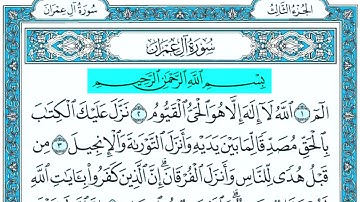 سورة آل عمران
الجزء الثالث
سورة آل عمران
بسم الله الرحمن الرحيم
الم ١ الله لا إله إلا هو الحي القيوم ٢ نزل عليك الكتب
بالحق مصدقا لما بين يديه وأنزل التورىة والإنجيل ٣ من
قبل هدى للناس وأنزل الفرقان إن الذين كفروا بـايت الله